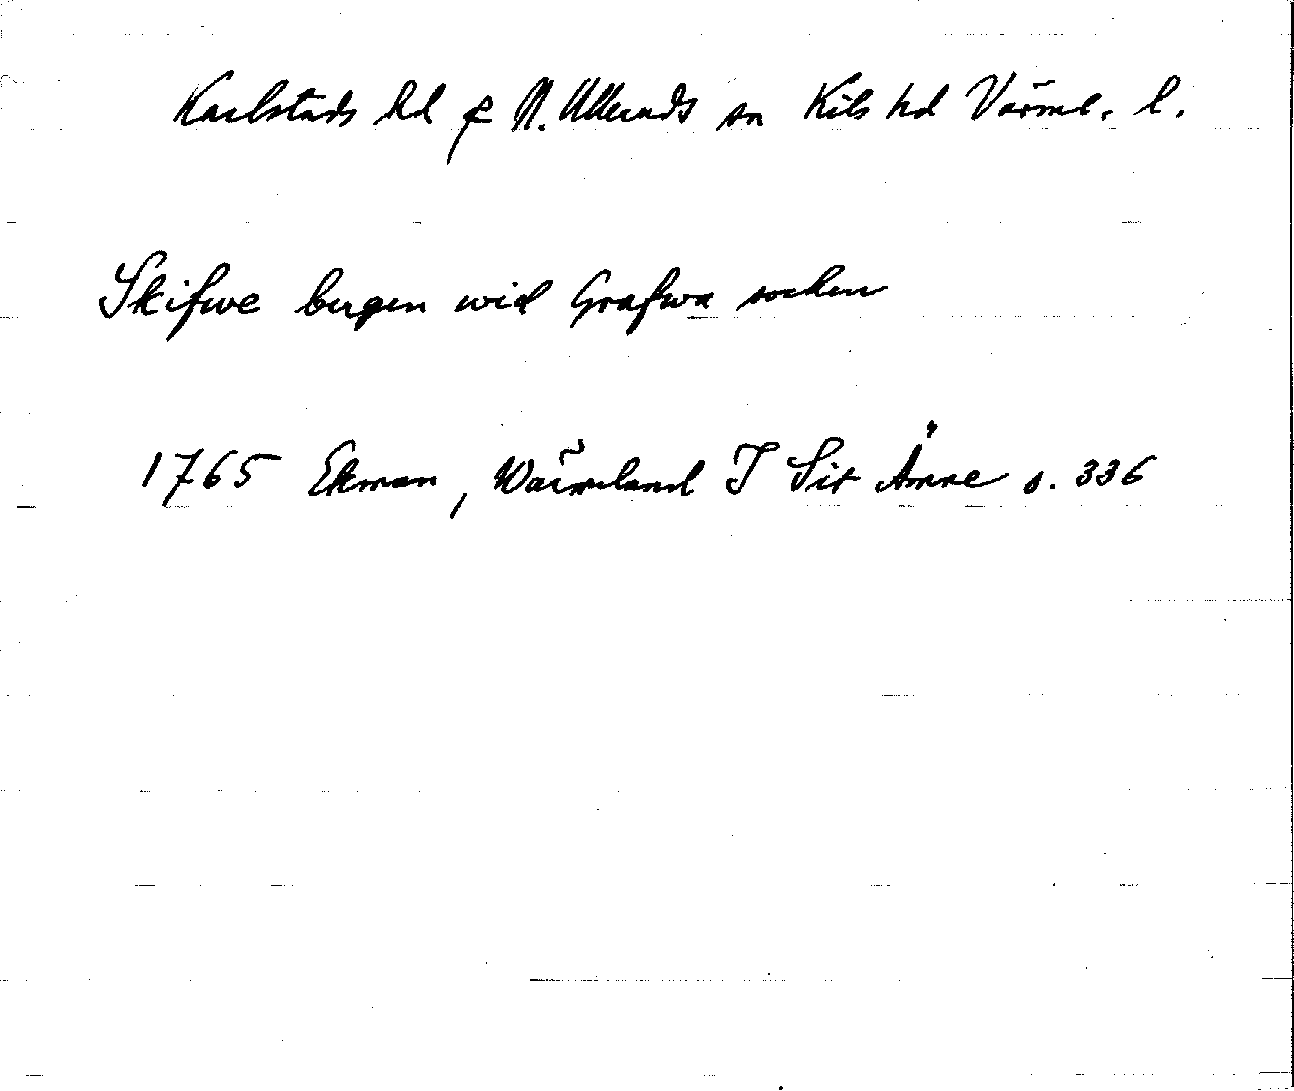 Karlstads hd f N. Ulleruds sn Kils hd Värml. l.
Skifwe bergen wid Grafwa socken
1765 Ekman, Wärmland I Sit Ämne s. 336